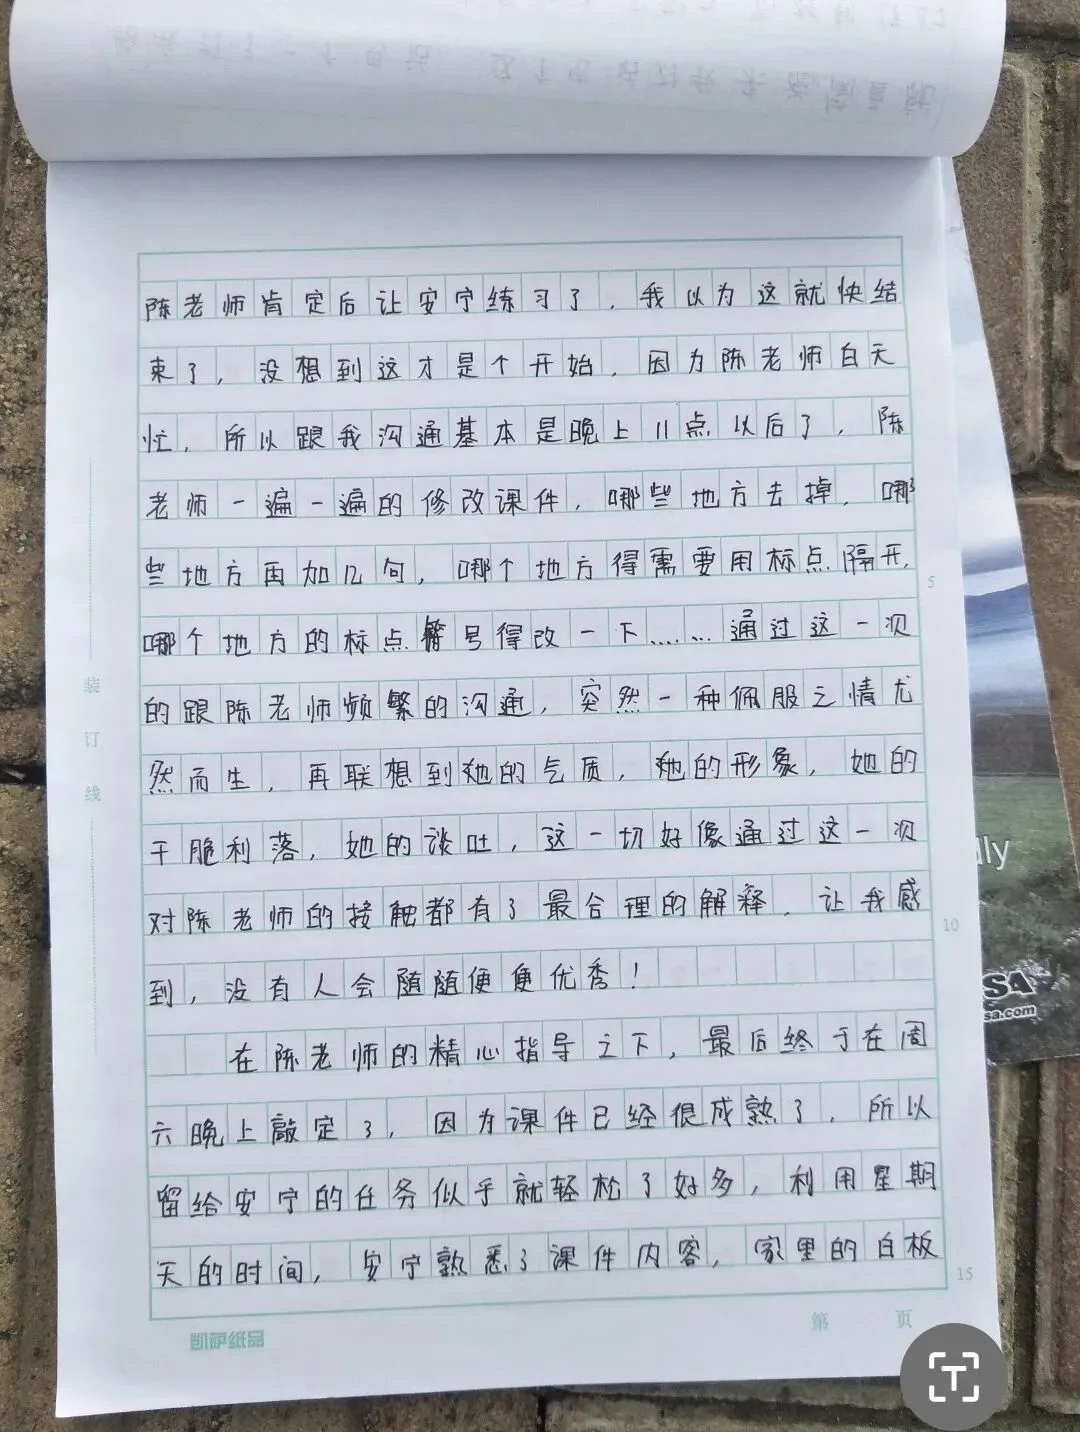 陈老师肯定后让安宁练习了，我以为这就快结
束了，没想到这才是个开始，因为陈老师白天
忙，所以跟我沟通基本是晚上11点以后了，陈
老师一遍一遍的修改课件，哪些地方去掉，哪
些地方再加几句，哪个地方得需要用标点隔开，
哪个地方的标点符号得改一下……通过这一次
的跟陈老师频繁的沟通，突然一种佩服之情尤
然而生，再联想到她的气质，她的形象，她的
干脆利落，她的谈吐，这一切好像通过这一次
对陈老师的接触都有了最合理的解释，让我感
到，没有人会随随便便优秀！
在陈老师的精心指导之下，最后终于在周
六晚上敲定了，因为课件已经很成熟了，所以
留给安宁的任务似乎就轻松了好多，利用星期
天的时间，安宁熟悉了课件内容，家里的白板
5
10
15
装订线
凯萨纸品
第 页
lly
SA
sa.com